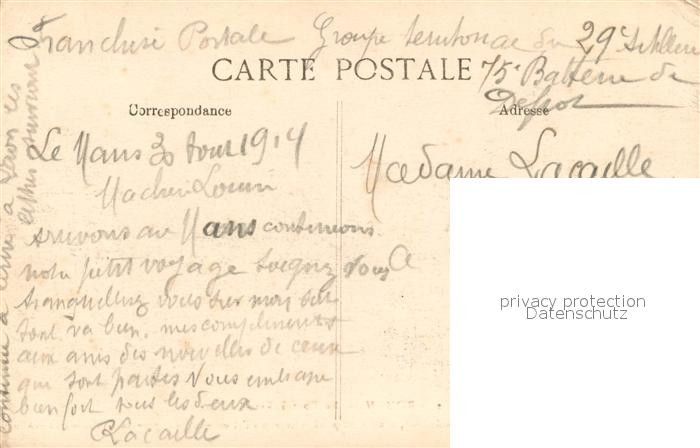 Franchise Postale Groupe territorial du 29e Artillerie
CARTE POSTALE 75e Batterie de
Depot
Correspondance
Adresse
Le Mans 30 Aout 1914
Madame Lacaille
Ma chere
arrivons au Mans continuons
notre petit voyage soignez vous
tranquillisez vous sur mon sort
tout va bien. mes compliments
aux amis des nouvelles de ceux
qui sont partis Vous embrasse
bien fort tous les deux
R Lacaille
continue a ecrire a
privacy protection
Datenschutz